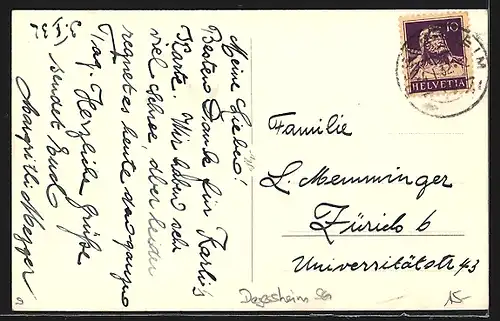 5/I/31
Meine Lieben!
Besten Dank für Karli's
Karte. Wir haben sehr
viel Schnee, aber leider
regnet es heute den ganzen
Tag. Herzliche Grüße
sendet Euch
Margritli Mezger
10
HELVETIA
EIM
Familie
L. Memminger
Zürich 6
Universitätstr 43
Degersheim SG
15-